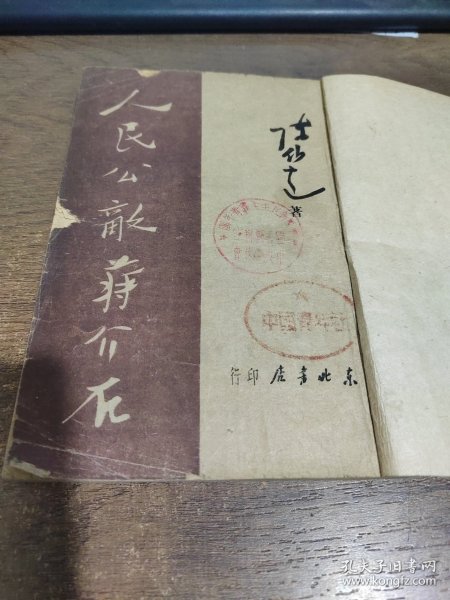 人民公敵蔣介石
陳伯達
著
中國青年社
東北書店印行
孔夫子旧书网
www.kongfz.com